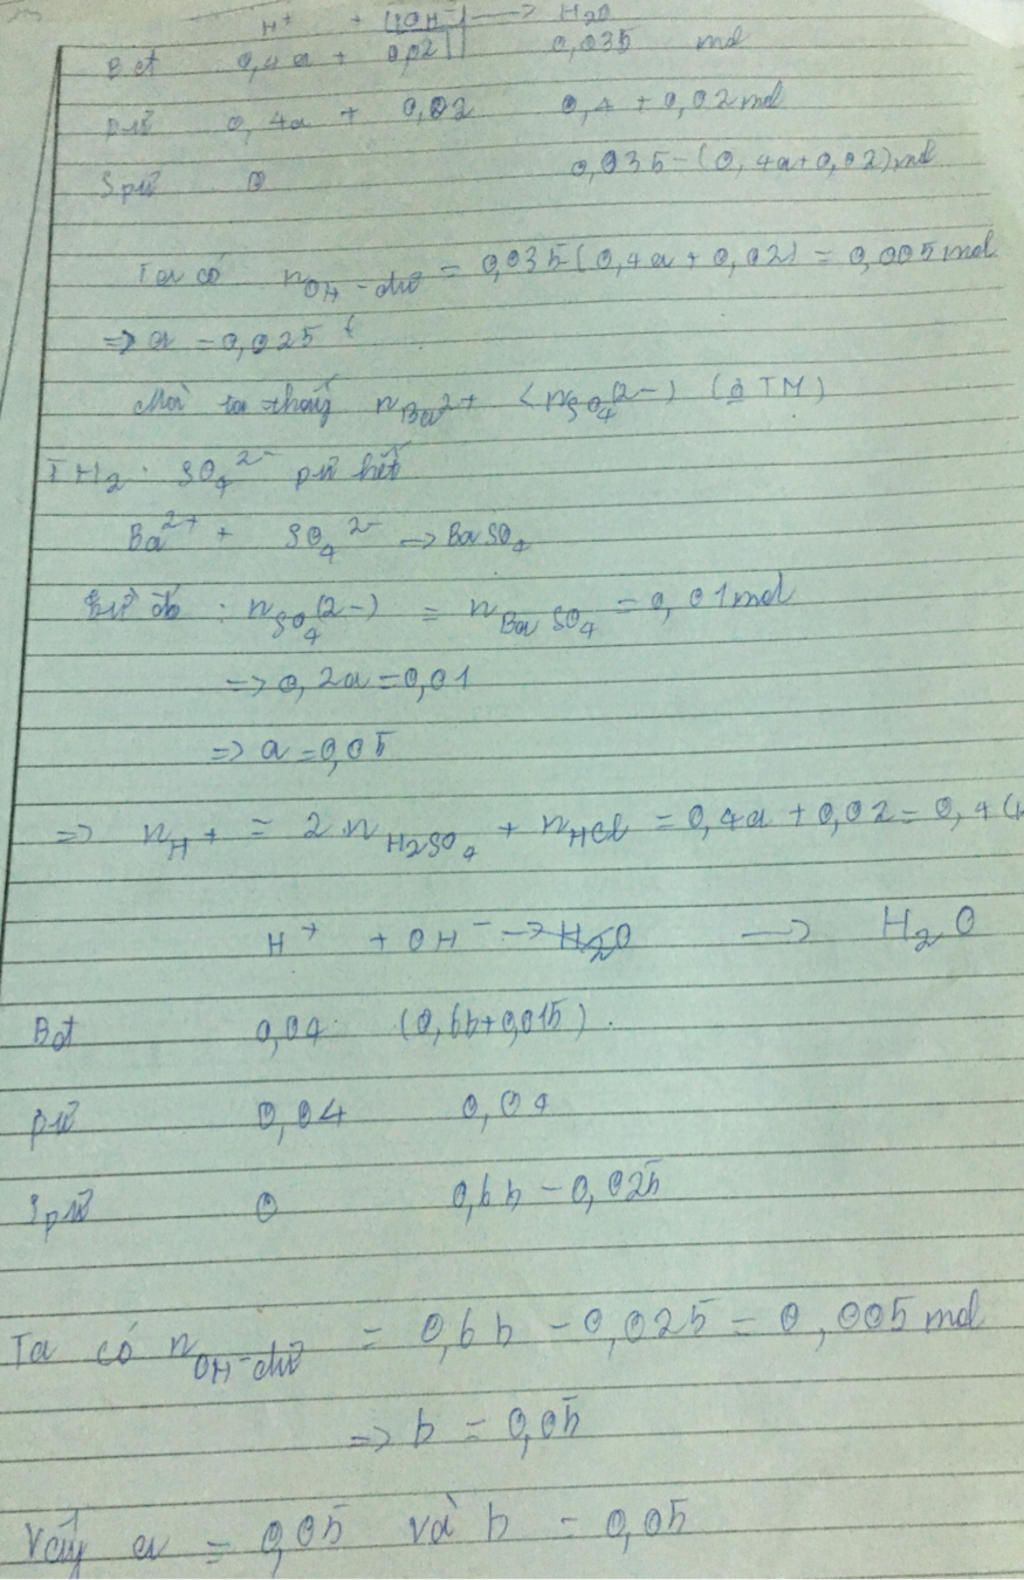 H⁺ + OH⁻ → H₂O
Bđ 0,4a + 0,02 0,035 mol
pứ 0,4a + 0,02 0,4 + 0,02 mol
Spứ 0 0,035-(0,4a+0,02) mol
Ta có n OH-dư = 0,035(0,4a + 0,02) = 0,005 mol
=> a = 0,025
Mà ta thấy n Ba²⁺ < n SO₄(2-) ( TM)
TH₂. SO₄²⁻ pứ hết
Ba²⁺ + SO₄²⁻ → BaSO₄
: n SO₄(2-) = n BaSO₄ = 0,01 mol
=> 0,2a = 0,01
=> a = 0,05
=> n H+ = 2.n H₂SO₄ + n HCl = 0,4a + 0,02 = 0,4(
H⁺ + OH⁻ → H₂O → H₂O
Bđ 0,04 (0,6b+0,015).
pứ 0,04 0,04
Spứ 0 0,6b - 0,025
Ta có n OH⁻dư = 0,6b - 0,025 = 0,005 mol
=> b = 0,05
Vậy a = 0,05 và b = 0,05